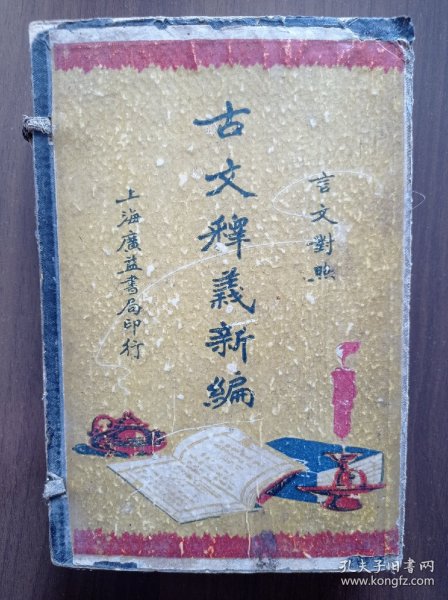 言文對照
古文釋義新編
上海廣益書局印行
孔夫子旧书网
www.kongfz.com